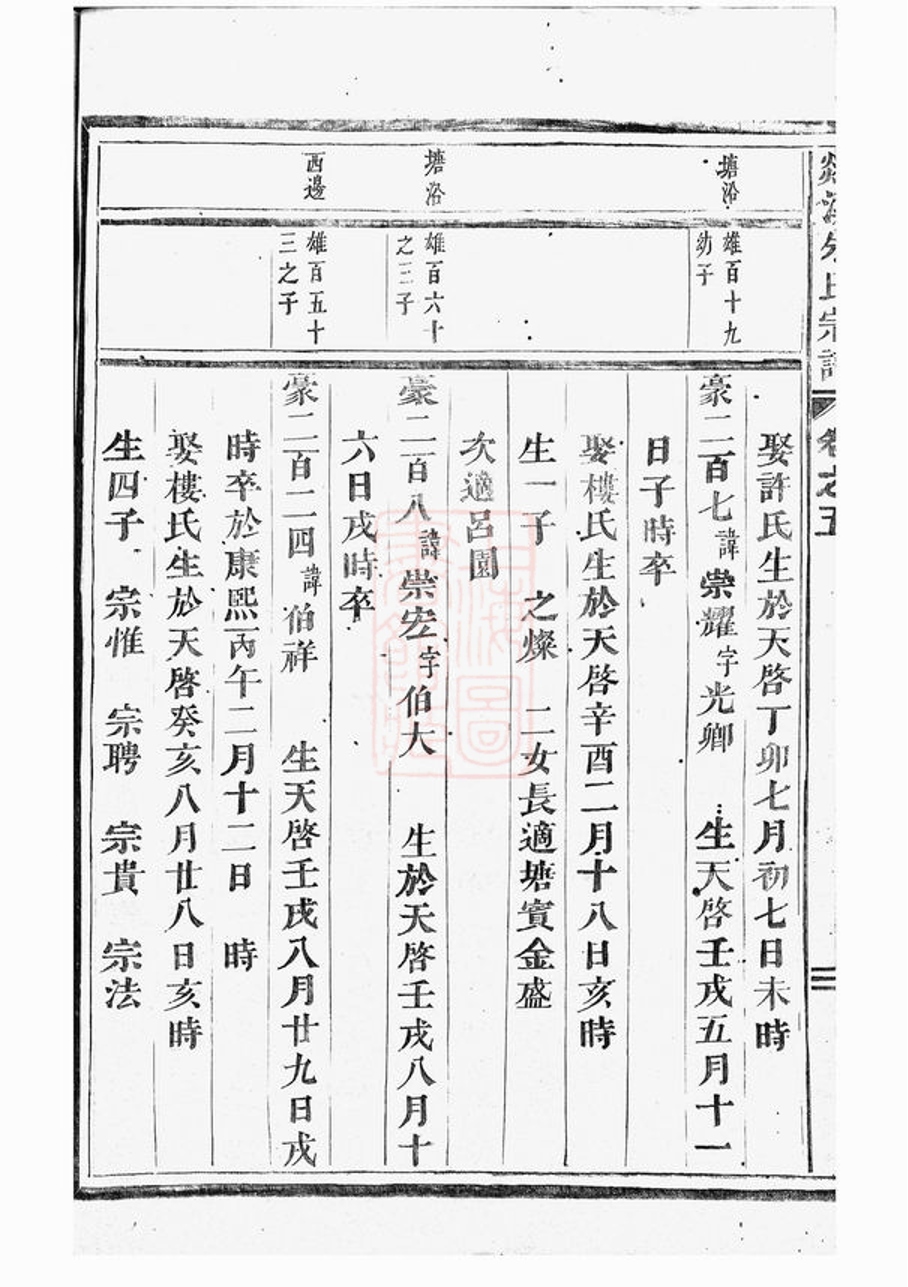 氏宗譜
卷之五
娶許氏生於天啓丁卯七月初七日未時
塘沿
雄百十九
幼子
豪二百七諱崇耀字光卿 生天啓壬戌五月十一
日子時卒
娶樓氏生於天啓辛酉二月十八日亥時
生一子 之燦 二女長適塘賓金盛
次適呂園
塘沿
雄百六十
之三子
豪二百八諱崇宏字伯大 生於天啓壬戌八月十
六日戌時卒
西邊
雄百五十
三之子
豪二百二四諱伯祥 生天啓壬戌八月廿九日戌
時卒於康熙丙午二月十二日 時
娶樓氏生於天啓癸亥八月廿八日亥時
生四子 宗惟 宗聘 宗貴 宗法